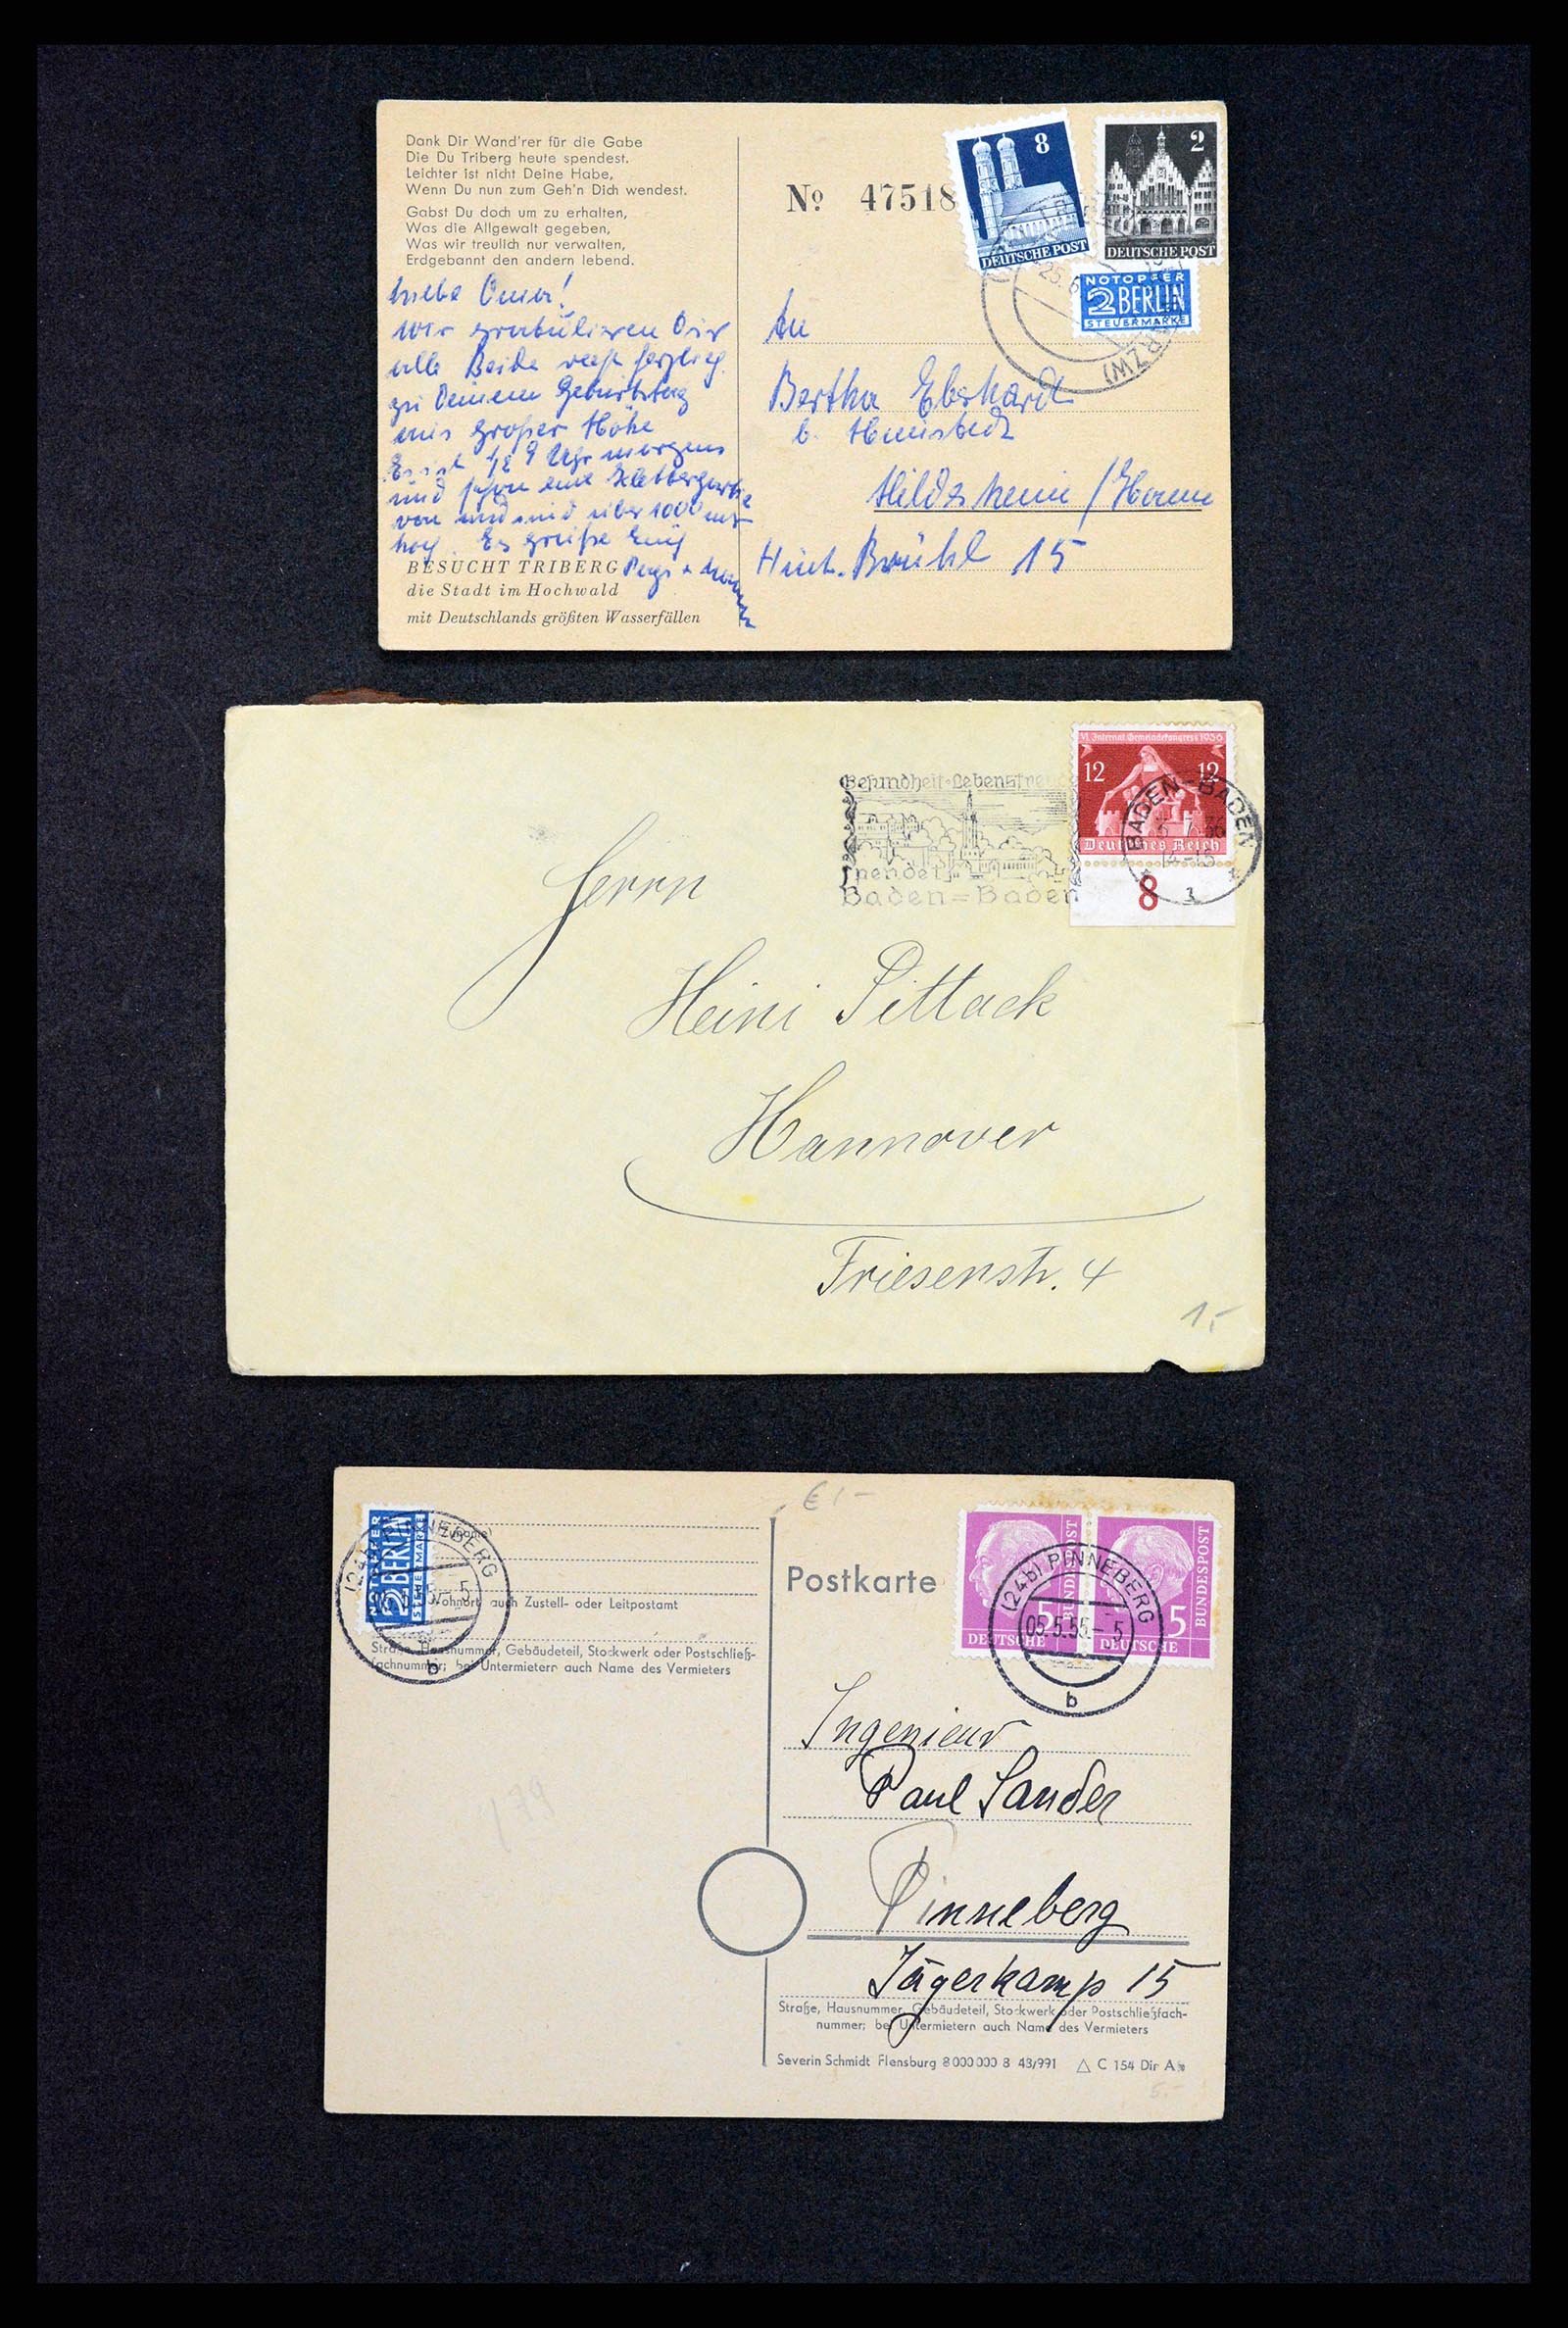 Dank Dir Wand'rer für die Gabe
Die Du Triberg heute spendest.
Leichter ist nicht Deine Habe,
Wenn Du nun zum Geh'n Dich wendest.
Gabst Du doch um zu erhalten,
Was die Allgewalt gegeben,
Was wir treulich nur verwalten,
Erdgebannt den andern lebend.
Liebe Oma!
Wir gratulieren Dir
alle Beide recht herzlich
zu Deinem Geburtstag
aus großer Höhe
Es ist 1/2 9 Uhr morgens
und schon eine Kletterpartie
von und sind über 1000 mtr
hoch. Es grüße Euch
BESUCHT TRIBERG
die Stadt im Hochwald
mit Deutschlands größten Wasserfällen
No 47518
8
DEUTSCHE POST
2
DEUTSCHE POST
NOTOPFER
2 BERLIN
STEUERMARKE
25.6
RZW)
An
Bertha Eberhardt
b.
Hildesheim / Hann
Hint. Brühl 15
Gesundheit-Lebensfre
spendet
Baden=Baden
VI. Internat. Gemeindekongress 1936
12 12
Deutsches Reich
BADEN-BADEN
8
Herrn
Heini Pittack
Hannover
Friesenstr. 4
1,-
€ 1-
NOTOPFER
2 BERLIN
STEUERMARKE
PINNEBERG
b
Wohnort, auch Zustell- oder Leitpostamt
Straße, Hausnummer, Gebäudeteil, Stockwerk oder Postschließ-
fachnummer; bei Untermietern auch Name des Vermieters
Postkarte
5 DEUTSCHE BUNDESPOST
5 DEUTSCHE BUNDESPOST
(24b) PINNEBERG
05.5.55.-5
b
Ingenieur
Paul Sander
Pinneberg
Jägerkamp 15
Straße, Hausnummer, Gebäudeteil, Stockwerk oder Postschließfach-
nummer; bei Untermietern auch Name des Vermieters
Severin Schmidt Flensburg 8 000 000 8 48/991 △ C 154 Din A 6
5.-